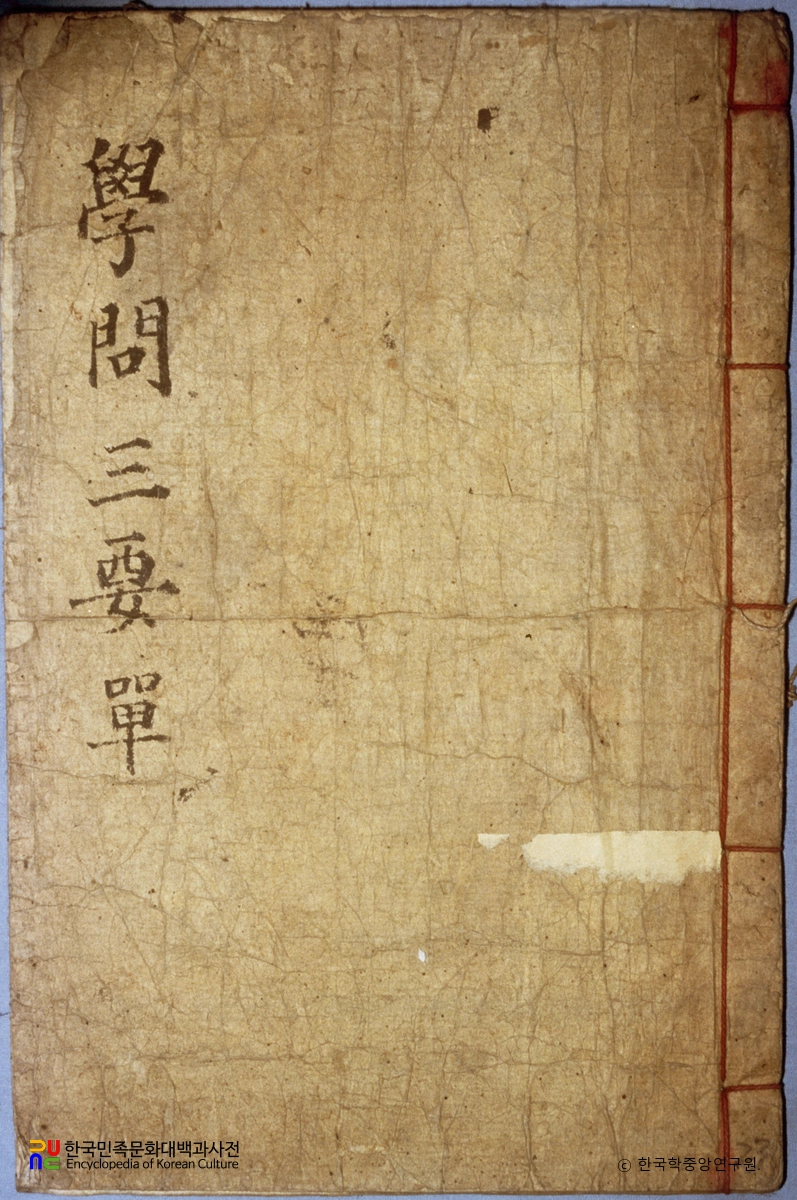 學問三要單
한국민족문화대백과사전
Encyclopedia of Korean Culture
© 한국학중앙연구원.